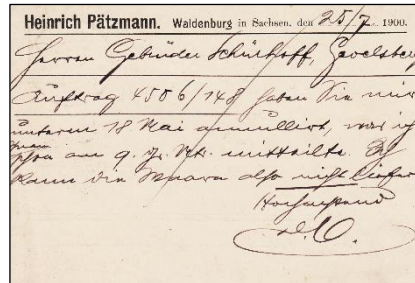 Heinrich Pätzmann. Waldenburg in Sachsen, den 25/7 1900.
Herren Gebrüder Schürhoff, Gevelsberg
Auftrag 4506/148 haben Sie mir
unterm 18 Mai annullirt, was ich
Ihnen schon am 9. ds. Mts. mitteilte. Ich
kann die Waare also nicht liefern
Hochachtend